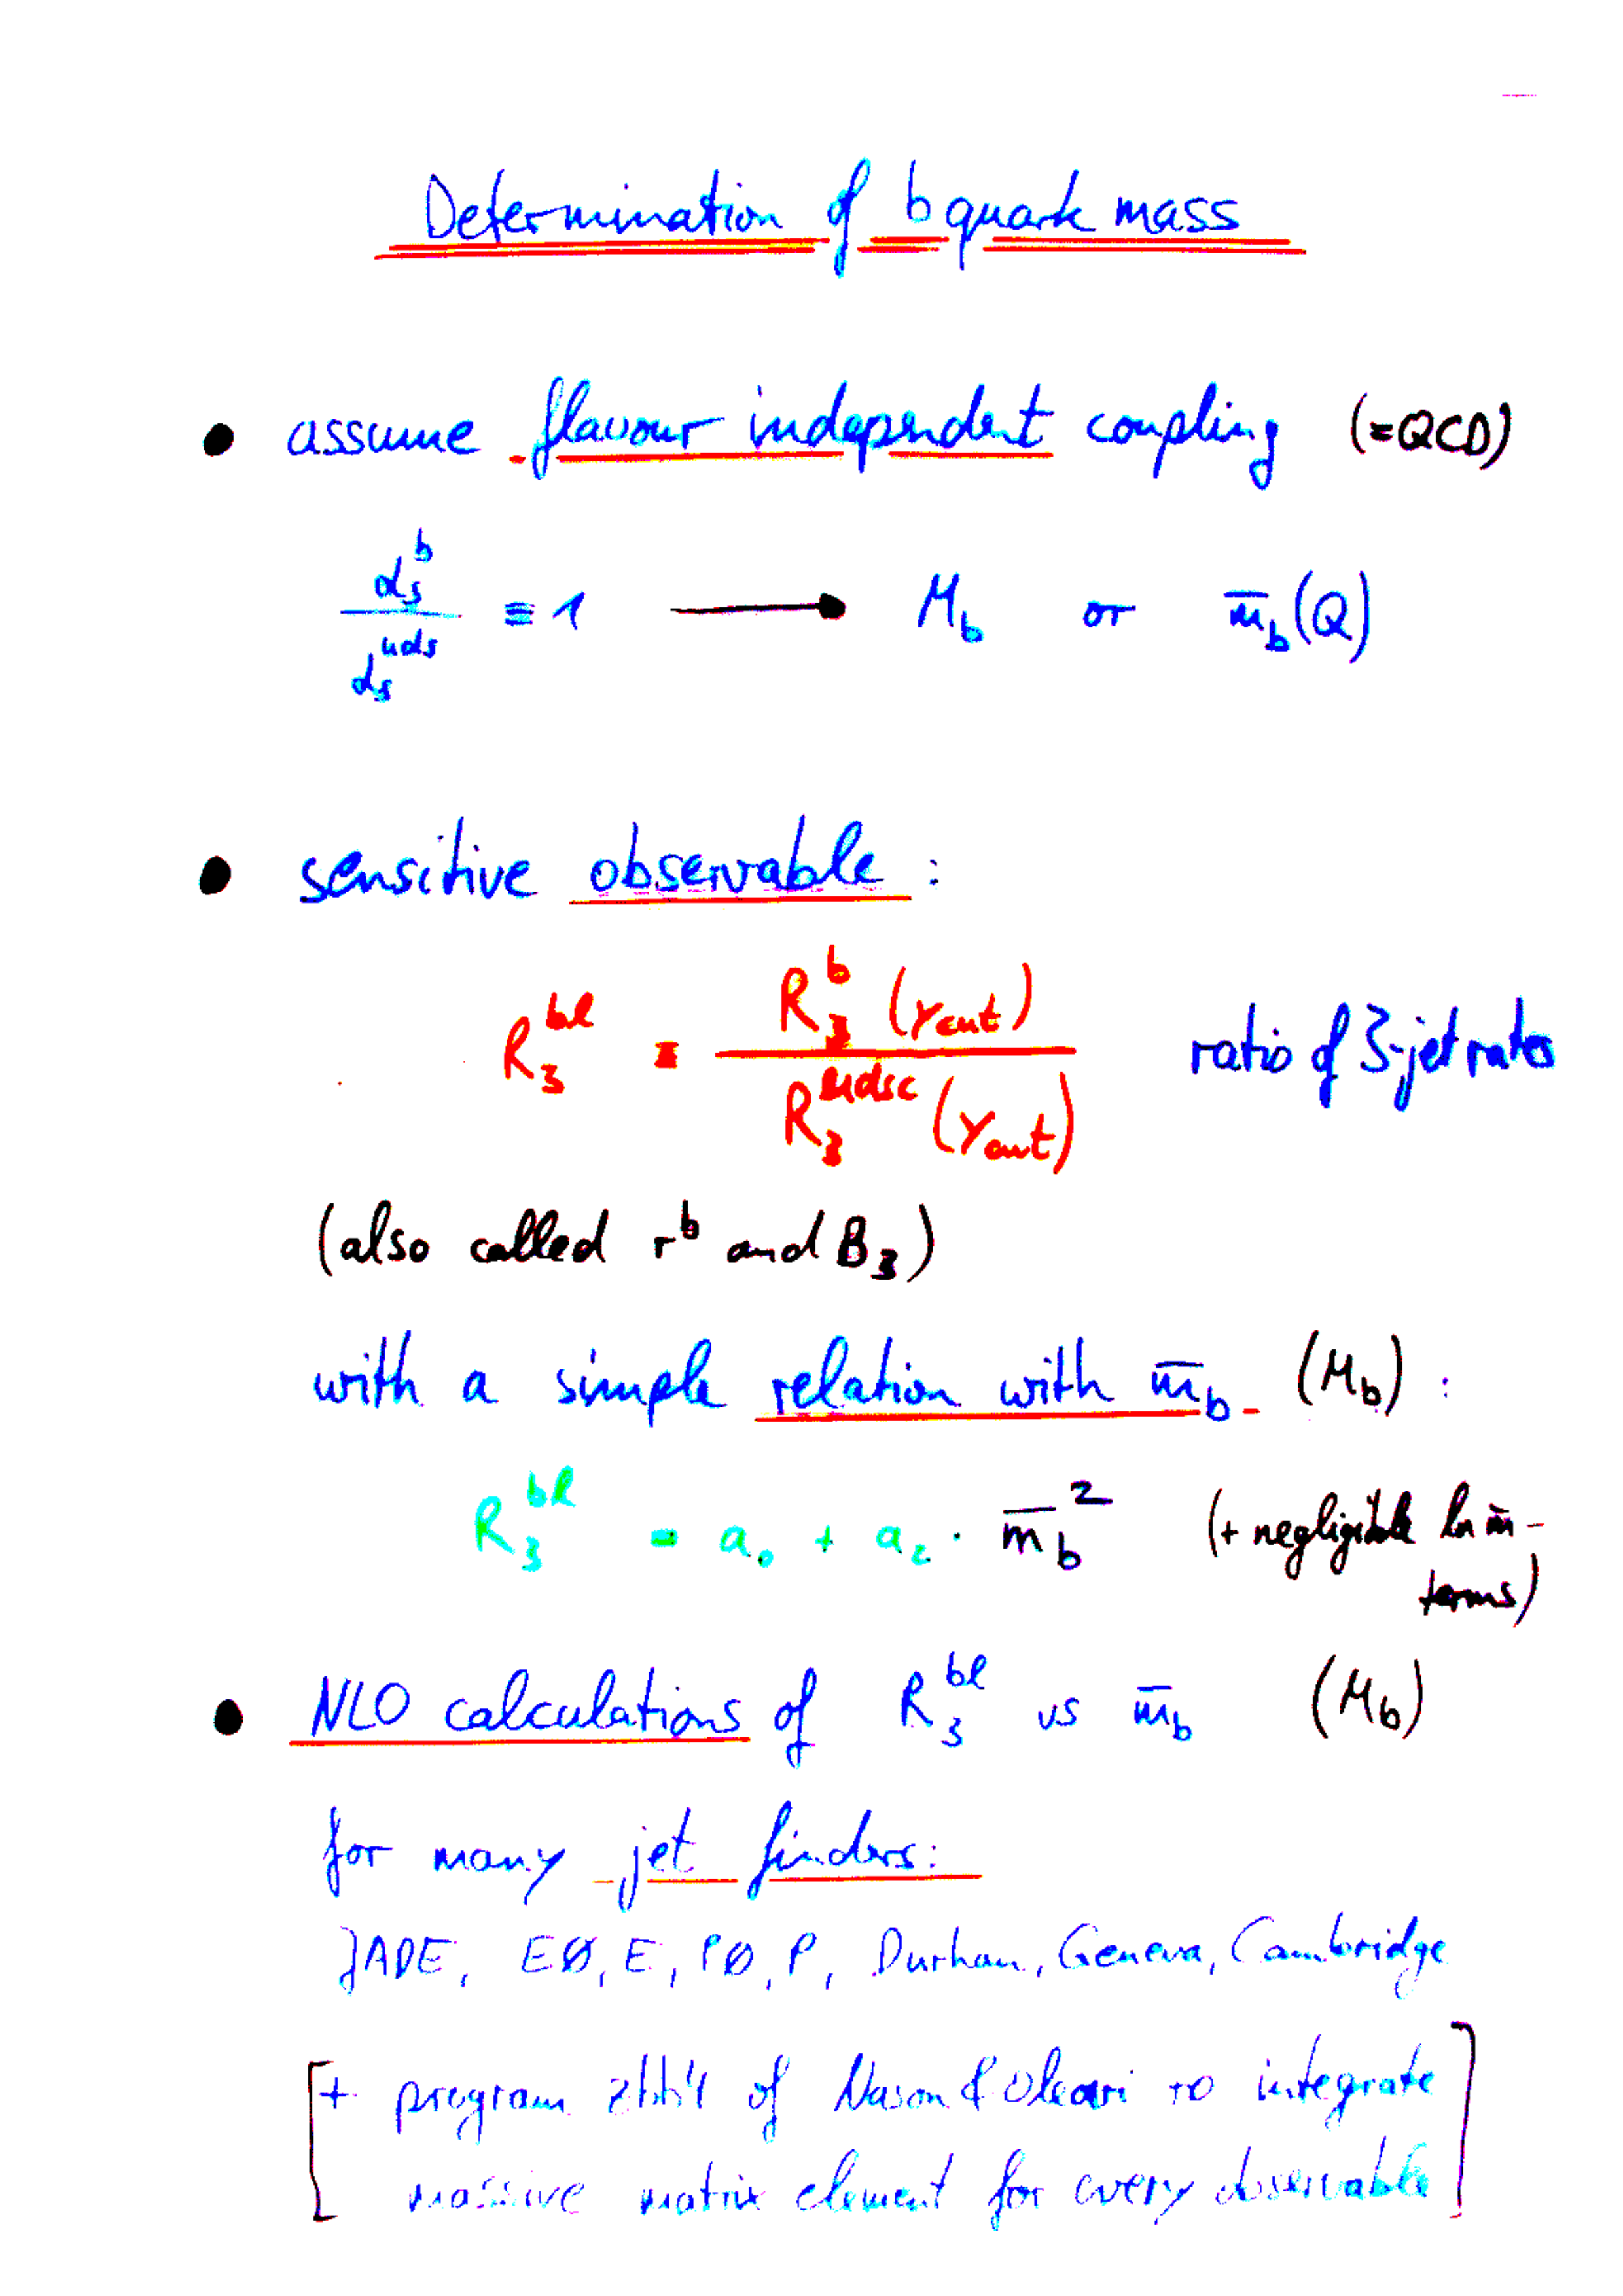 Determination of b quark mass
• assume flavour independent coupling (=QCD)
α_s^b / α_s^uds ≡ 1 ⟶ M_b or m̅_b(Q)
• sensitive observable :
R_3^bl = R_3^b (y_cut) / R_3^udsc (y_cut) ratio of 3-jet rates
(also called r^b and B_3)
with a simple relation with m̅_b (M_b) :
R_3^bl = a_0 + a_2 · m̅_b^2 (+ negligible ln m̅ -
terms)
• NLO calculations of R_3^bl vs m̅_b (M_b)
for many jet finders:
JADE, EØ, E, PØ, P, Durham, Geneva, Cambridge
[+ program zbb4 of Nason & Oleari to integrate
massive matrix element for every observable]